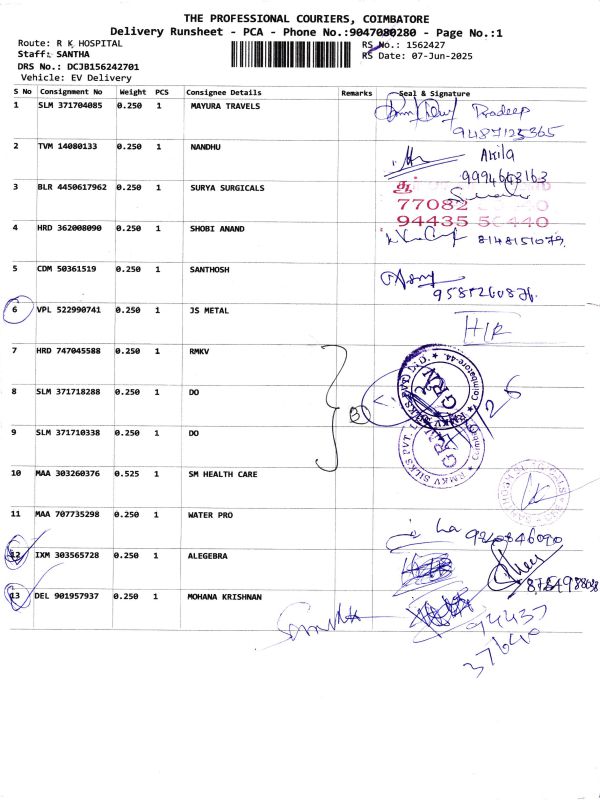 THE PROFESSIONAL COURIERS, COIMBATORE
Delivery Runsheet - PCA - Phone No.:9047080280 - Page No.:1
Route: R K HOSPITAL
Staff: SANTHA
DRS No.: DCJB156242701
Vehicle: EV Delivery
RS No.: 1562427
RS Date: 07-Jun-2025
S No Consignment No Weight PCS Consignee Details Remarks Seal & Signature
1 SLM 371704085 0.250 1 MAYURA TRAVELS
Pradeep
9487125365
2 TVM 14080133 0.250 1 NANDHU
Akila
9994663163
3 BLR 4450617962 0.250 1 SURYA SURGICALS
77082
94435 440
4 HRD 362008090 0.250 1 SHOBI ANAND
8148151079
5 CDM 50361519 0.250 1 SANTHOSH
9587260876
6 VPL 522990741 0.250 1 JS METAL
H/R
7 HRD 747045588 0.250 1 RMKV
8 SLM 371718288 0.250 1 DO
3
RMKV SILKS PVT. LTD. Coimbatore-44.
GRN
9 SLM 371710338 0.250 1 DO
RMKV SILKS PVT.
GRN
10 MAA 303260376 0.525 1 SM HEALTH CARE
11 MAA 707735298 0.250 1 WATER PRO
9240846090
12 IXM 303565728 0.250 1 ALEGEBRA
13 DEL 901957937 0.250 1 MOHANA KRISHNAN
94437
37640